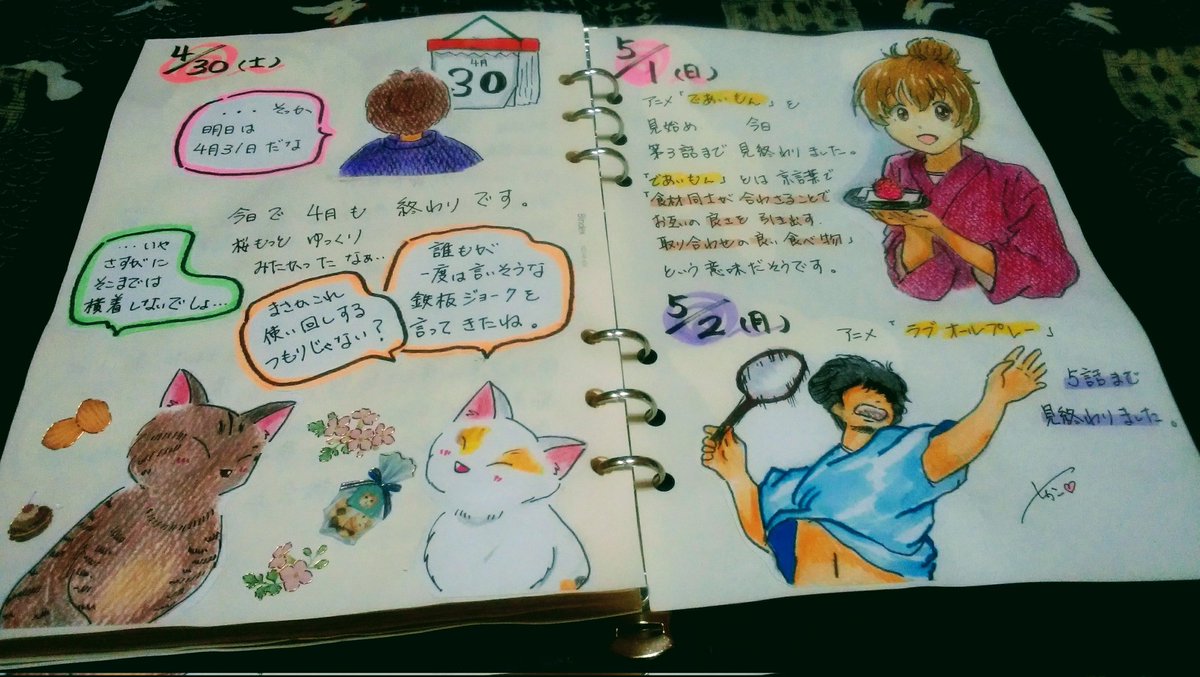 4/30(土)
4月
30
...そっか
明日は
4月31日だな
今日で4月も終わりです。
桜もっとゆっくり
みたかったなぁ…
…いや
さすがに
そこまでは
横着しないでしょ…
まさかこれ
使い回しする
つもりじゃない?
誰もが
一度は言いそうな
鉄板ジョークを
言ってきたね。
5/1(日)
アニメ「であいもん」を
見始め 今日
第3話まで見終わりました。
「であいもん」とは京言葉で
「食材同士が合わさることで
お互いの良さを引き出す
取り合わせの良い食べ物」
という意味だそうです。
5/2(月)
アニメ「ラブオールプレー」
5話まで
見終わりました。